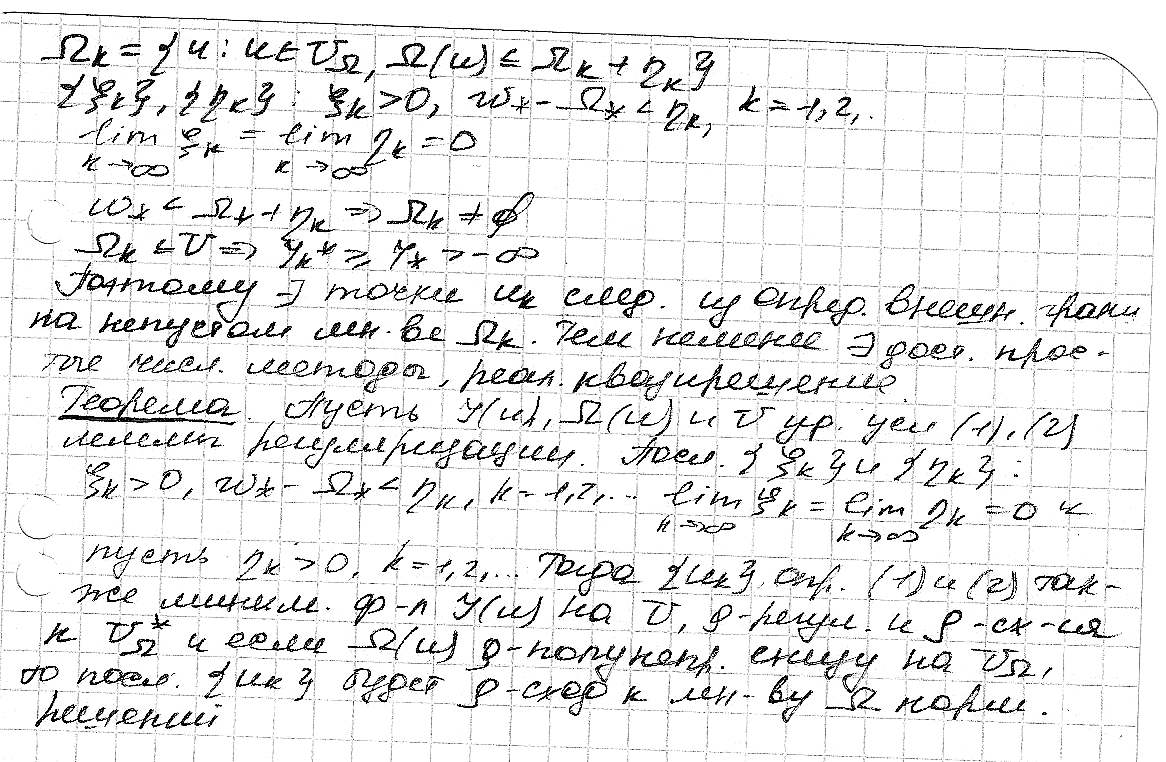 Ω_k = {u : u ∈ U_Ω, Ω(u) ≤ Ω_k + η_k}
{ξ_k}, {η_k} : ξ_k > 0, ω_* - Ω_* < η_k, k = 1,2,..
lim_{k→∞} ξ_k = lim_{k→∞} η_k = 0
ω_* < Ω_* + η_k ⇒ Ω_k ≠ ∅
Ω_k ⊂ U ⇒ J_k^* ≥ J_* > -∞
Поэтому ∃ точки u_k след. из опред. внешн. грани
на непустом мн-ве Ω_k. Тем неменее ∃ дост. прос-
тые числ. методы, реал. квазирешение.
Теорема. Пусть J(u), Ω(u) и U ур. усл (1), (2)
леммы регуляризации. Посл. {ξ_k} и {η_k} :
ξ_k > 0, ω_* - Ω_* < η_k, k = 1,2,... lim_{k→∞} ξ_k = lim_{k→∞} η_k = 0 и
пусть η_k > 0, k = 1,2,... Тогда {u_k} опр. (1) и (2) так-
же миним. ф-л J(u) на U, ρ-регул. и ρ-сх-ся
к U_Ω^* и если Ω(u) ρ-полунепр. снизу на U_Ω,
то посл. {u_k} будет ρ-сход к мн-ву Ω норм.
решений